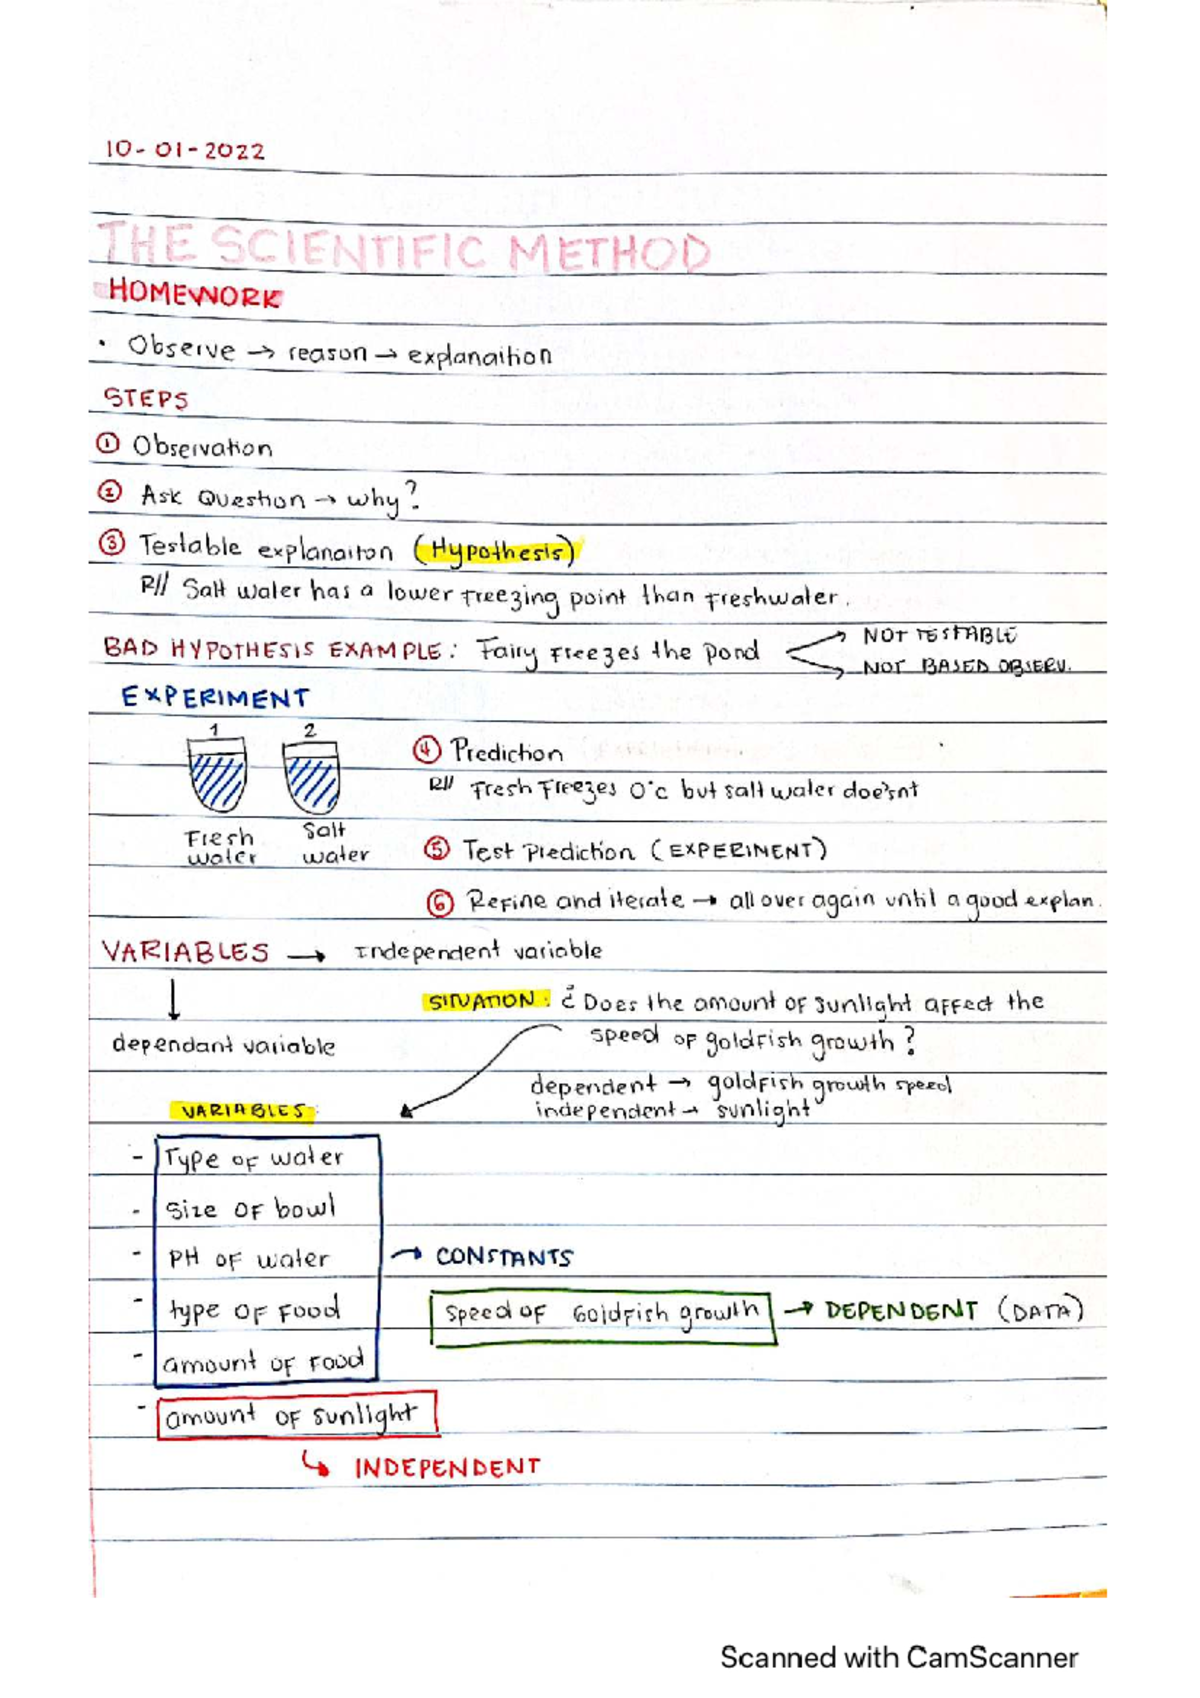 10-01-2022
THE SCIENTIFIC METHOD
HOMEWORK
• Observe → reason → explanaition
STEPS
① Observation
② Ask Question → why?
③ Testable explanaiton (Hypothesis)
R// Salt water has a lower freezing point than freshwater.
BAD HYPOTHESIS EXAMPLE: Fairy freezes the pond
NOT TESTABLE
NOT BASED OBSERV.
EXPERIMENT
1 2
Fresh water
Salt water
④ Prediction
R// Fresh freezes 0°c but salt water doe'snt
⑤ Test Prediction (EXPERIMENT)
⑥ Refine and iterate → all over again until a good explan.
VARIABLES → Independent variable
↓
dependant variable
SITUATION: ¿ Does the amount of sunlight affect the
speed of goldfish growth?
dependent → goldfish growth speed
independent → sunlight
VARIABLES:
- Type of water
- Size of bowl
- PH of water
→ CONSTANTS
- type of food
- amount of food
Speed of Goldfish growth → DEPENDENT (DATA)
- amount of sunlight
↳ INDEPENDENT
Scanned with CamScanner